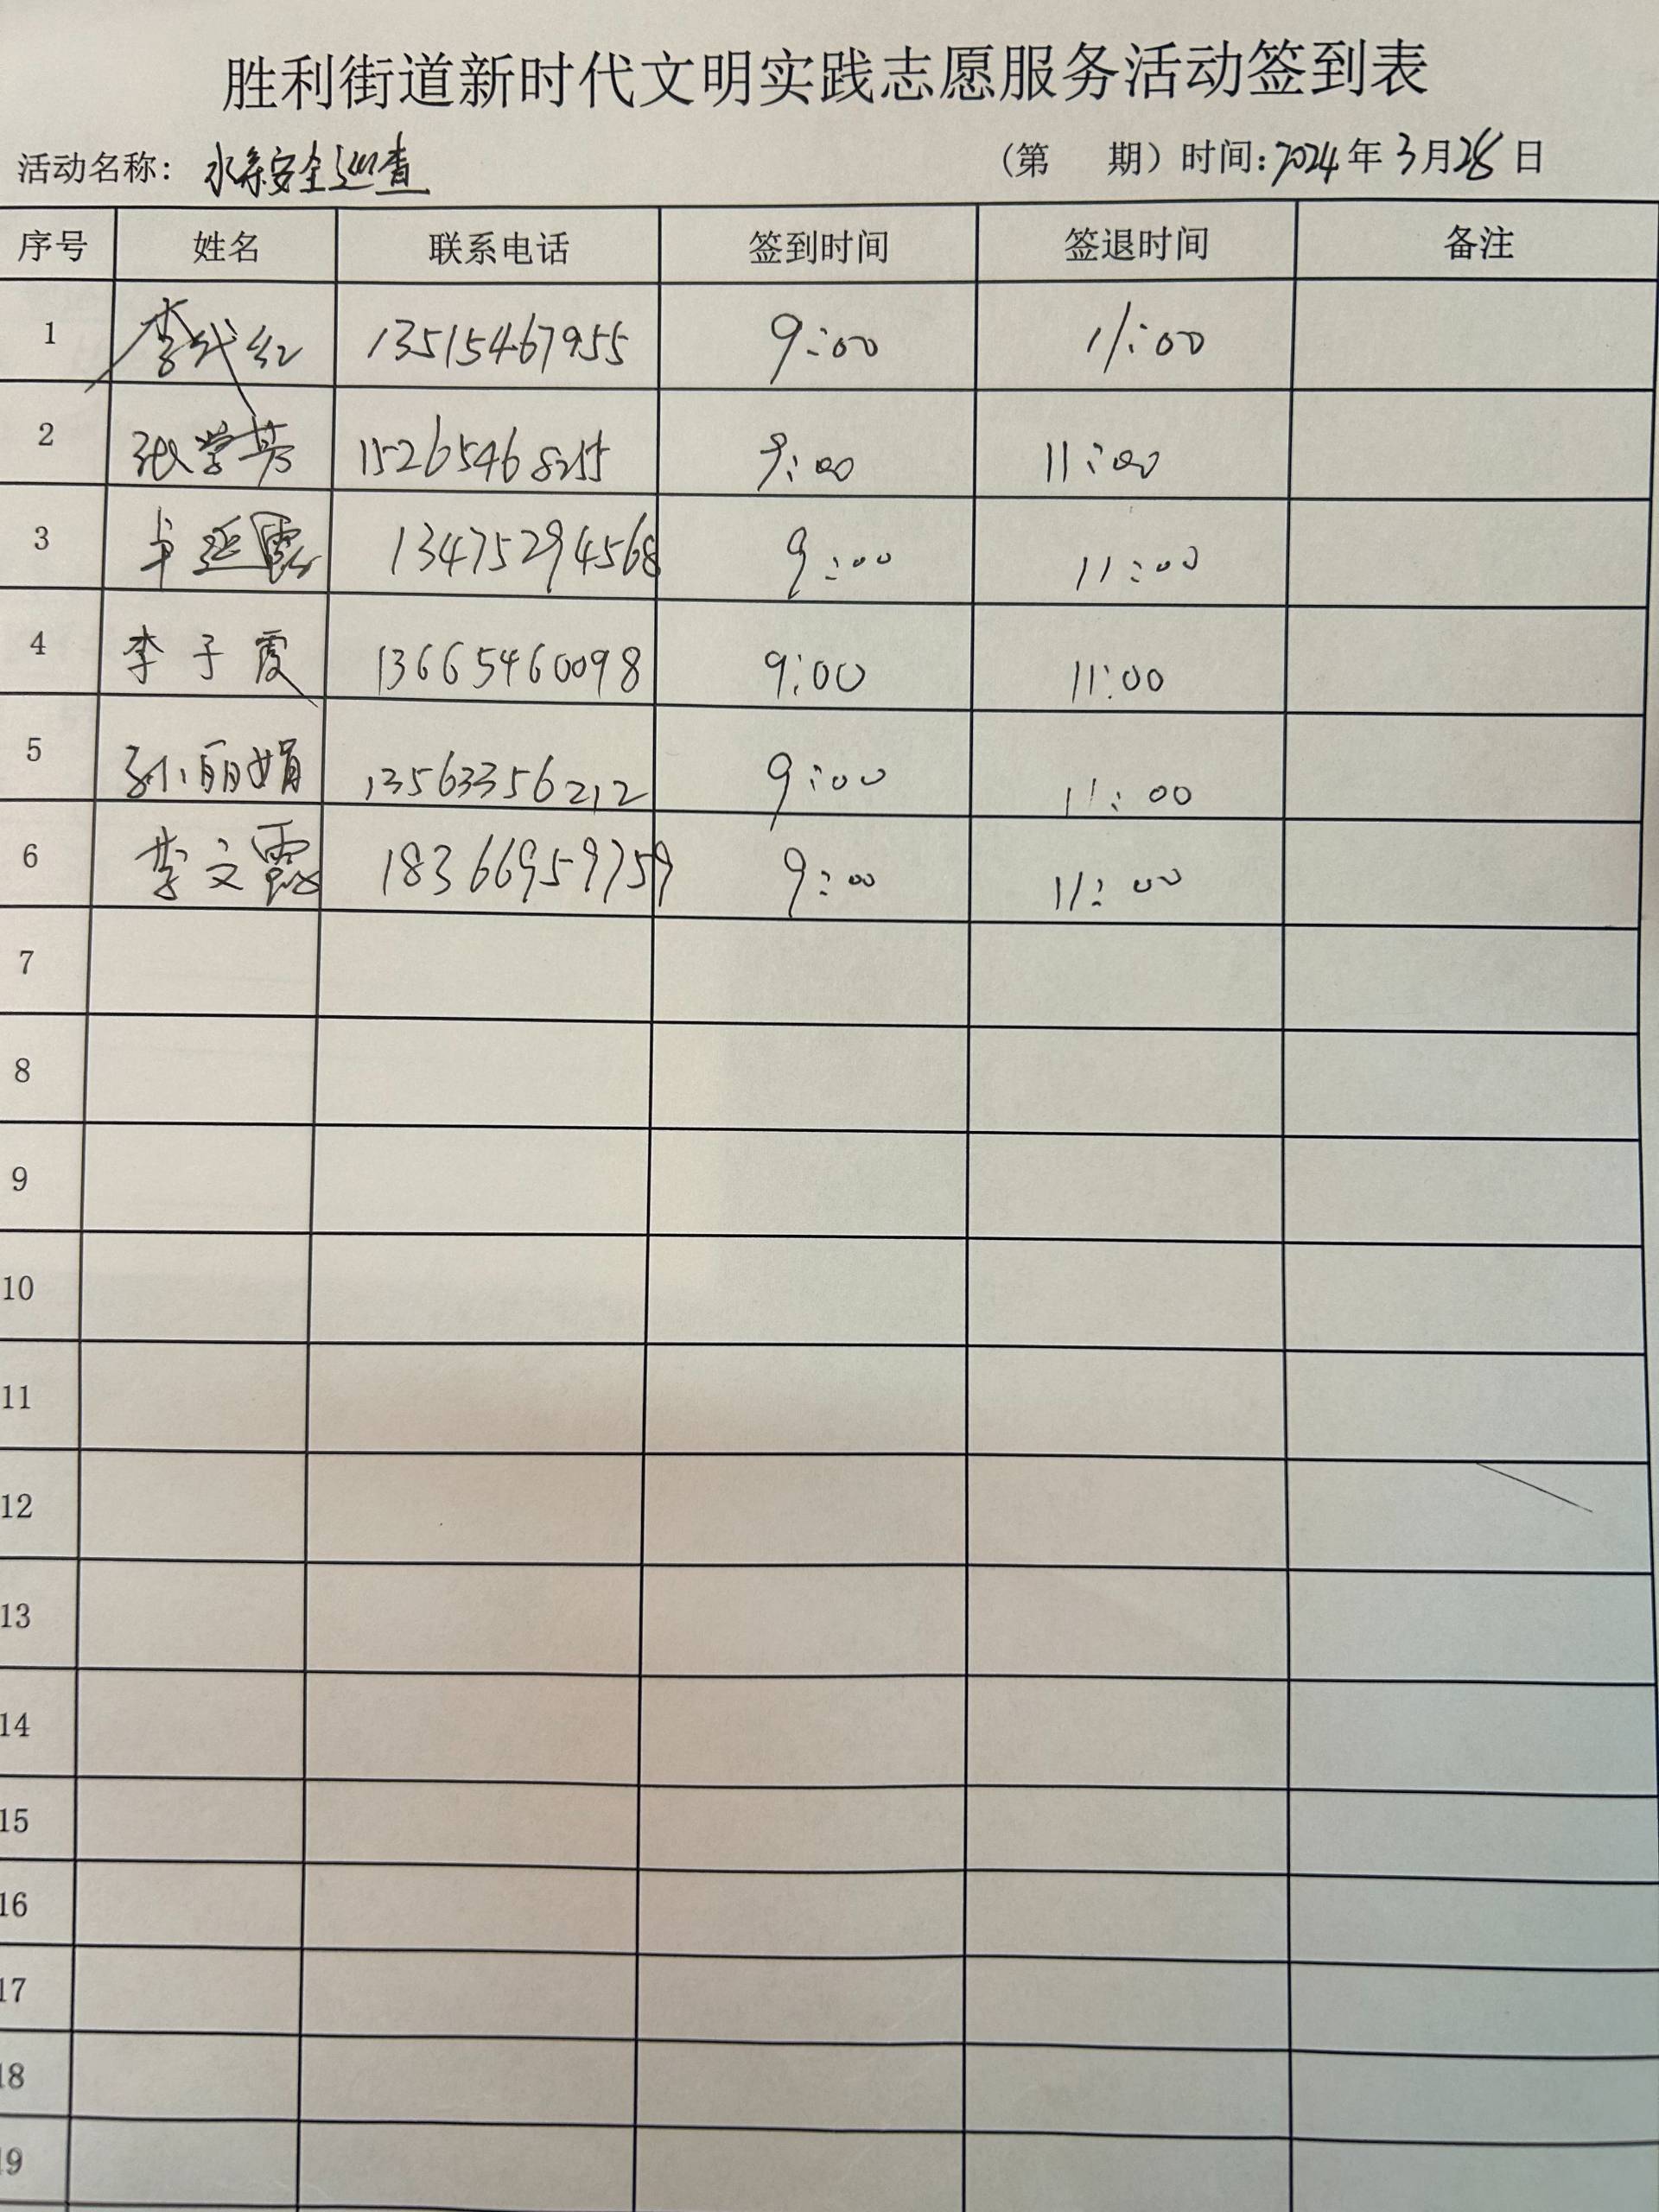 胜利街道新时代文明实践志愿服务活动签到表
活动名称: 水系安全巡查 (第 期) 时间: 2024年3月28日
序号 姓名 联系电话 签到时间 签退时间 备注
1 李代红 13515467955 9:00 11:00
2 张学芳 15265468255 9:00 11:00
3 卓延霞 13475294568 9:00 11:00
4 李于霞 13665460098 9:00 11:00
5 孙丽娟 13563356212 9:00 11:00
6 李文霞 18366959759 9:00 11:00
7
8
9
10
11
12
13
14
15
16
17
18
19